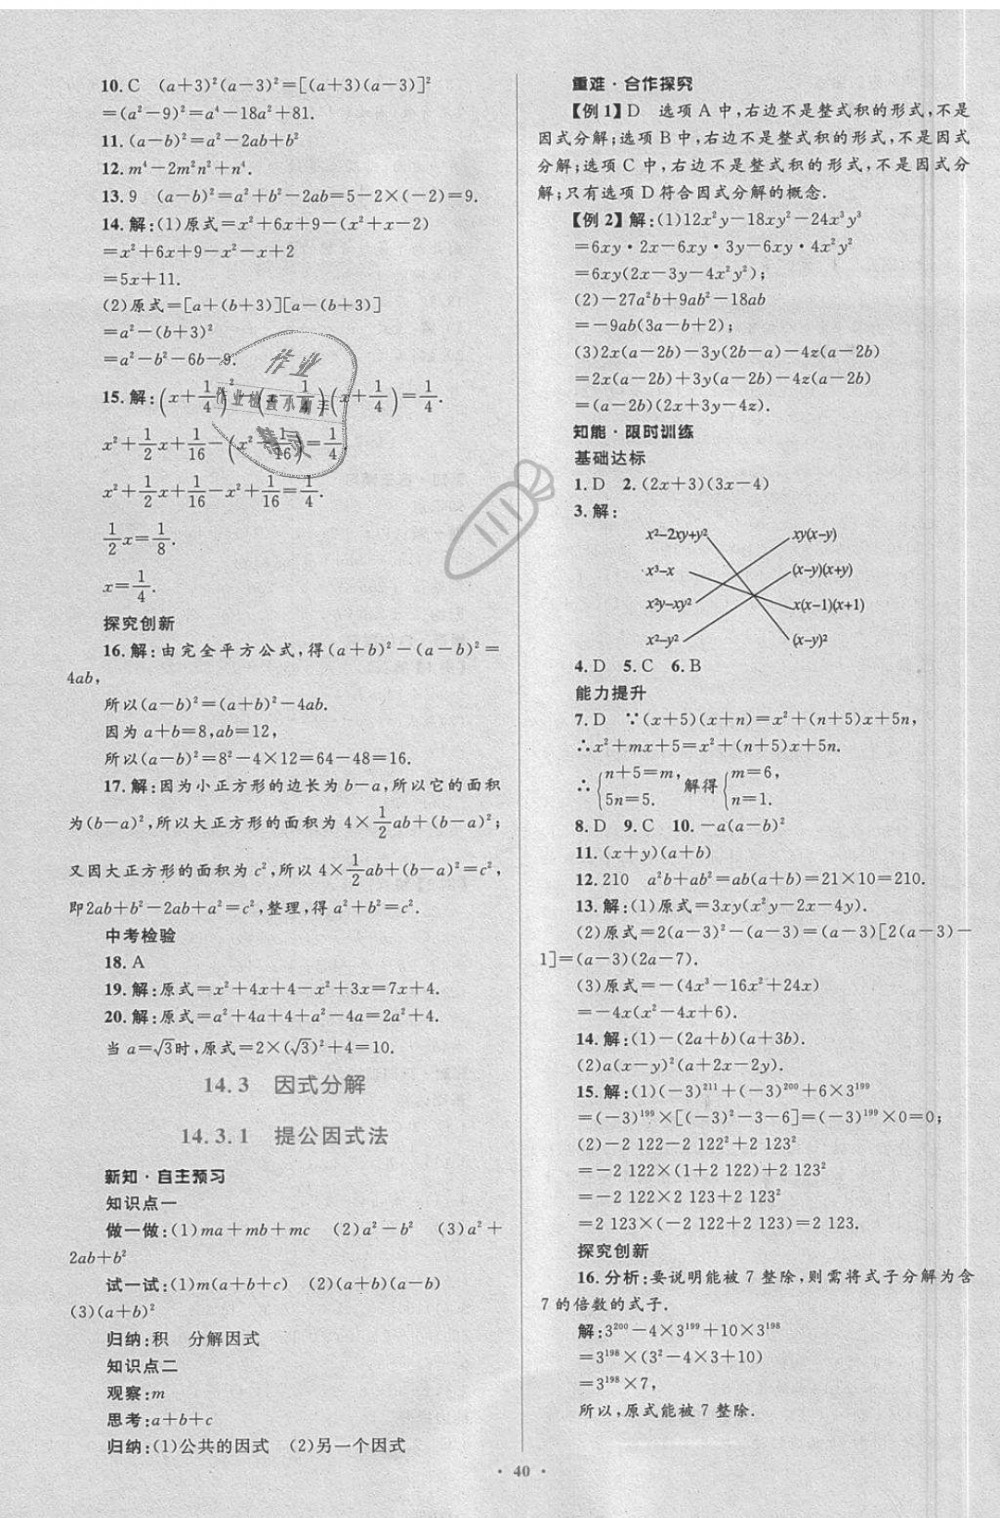 10. C (a+3)²(a-3)²=[(a+3)(a-3)]²
=(a²-9)²=a⁴-18a²+81.
11. (a-b)²=a²-2ab+b²
12. m⁴-2m²n²+n⁴.
13. 9 (a-b)²=a²+b²-2ab=5-2×(-2)=9.
14. 解:(1)原式=x²+6x+9-(x²+x-2)
=x²+6x+9-x²-x+2
=5x+11.
(2)原式=[a+(b+3)][a-(b+3)]
=a²-(b+3)²
=a²-b²-6b-9.
15. 解:(x+1/4)²-(x-1/4)(x+1/4)=1/4.
x²+1/2x+1/16-(x²-1/16)=1/4.
x²+1/2x+1/16-x²+1/16=1/4.
1/2x=1/8.
x=1/4.
探究创新
16. 解:由完全平方公式,得(a+b)²-(a-b)²=
4ab,
所以(a-b)²=(a+b)²-4ab.
因为a+b=8,ab=12,
所以(a-b)²=8²-4×12=64-48=16.
17. 解:因为小正方形的边长为b-a,所以它的面积
为(b-a)²,所以大正方形的面积为4×1/2ab+(b-a)²;
又因大正方形的面积为c²,所以4×1/2ab+(b-a)²=c²,
即2ab+b²-2ab+a²=c²,整理,得a²+b²=c².
中考检验
18. A
19. 解:原式=x²+4x+4-x²+3x=7x+4.
20. 解:原式=a²+4a+4+a²-4a=2a²+4.
当a=√3时,原式=2×(√3)²+4=10.
14.3 因式分解
14.3.1 提公因式法
新知·自主预习
知识点一
做一做:(1)ma+mb+mc (2)a²-b² (3)a²+
2ab+b²
试一试:(1)m(a+b+c) (2)(a+b)(a-b)
(3)(a+b)²
归纳:积 分解因式
知识点二
观察:m
思考:a+b+c
归纳:(1)公共的因式 (2)另一个因式
重难·合作探究
【例1】D 选项A中,右边不是整式积的形式,不是
因式分解;选项B中,右边不是整式积的形式,不是因式
分解;选项C中,右边不是整式积的形式,不是因式分
解;只有选项D符合因式分解的概念.
【例2】解:(1)12x²y-18xy²-24x³y³
=6xy·2x-6xy·3y-6xy·4x²y²
=6xy(2x-3y-4x²y²);
(2)-27a²b+9ab²-18ab
=-9ab(3a-b+2);
(3)2x(a-2b)-3y(2b-a)-4z(a-2b)
=2x(a-2b)+3y(a-2b)-4z(a-2b)
=(a-2b)(2x+3y-4z).
知能·限时训练
基础达标
1. D 2. (2x+3)(3x-4)
3. 解:
x²-2xy+y² xy(x-y)
x³-x (x-y)(x+y)
x²y-xy² x(x-1)(x+1)
x²-y² (x-y)²
4. D 5. C 6. B
能力提升
7. D ∵(x+5)(x+n)=x²+(n+5)x+5n,
∴x²+mx+5=x²+(n+5)x+5n.
∴{n+5=m, 5n=5. 解得{m=6, n=1.
8. D 9. C 10. -a(a-b)²
11. (x+y)(a+b)
12. 210 a²b+ab²=ab(a+b)=21×10=210.
13. 解:(1)原式=3xy(x²y-2x-4y).
(2)原式=2(a-3)²-(a-3)=(a-3)[2(a-3)-
1]=(a-3)(2a-7).
(3)原式=-(4x³-16x²+24x)
=-4x(x²-4x+6).
14. 解:(1)-(2a+b)(a+3b).
(2)a(x-y)²(a+2x-2y)
15. 解:(1)(-3)²¹¹+(-3)²⁰⁰+6×3¹⁹⁹
=(-3)¹⁹⁹×[(-3)²-3-6]=(-3)¹⁹⁹×0=0;
(2)-2 122-2 122²+2 123²
=-2 122×(1+2 122)+2 123²
=-2 122×2 123+2 123²
=2 123×(-2 122+2 123)=2 123.
探究创新
16. 分析:要说明能被7整除,则需将式子分解为含
7的倍数的式子.
解:3²⁰⁰-4×3¹⁹⁹+10×3¹⁹⁸
=3¹⁹⁸×(3²-4×3+10)
=3¹⁹⁸×7,
所以,原式能被7整除.
· 40 ·
作业
作业检查小助手